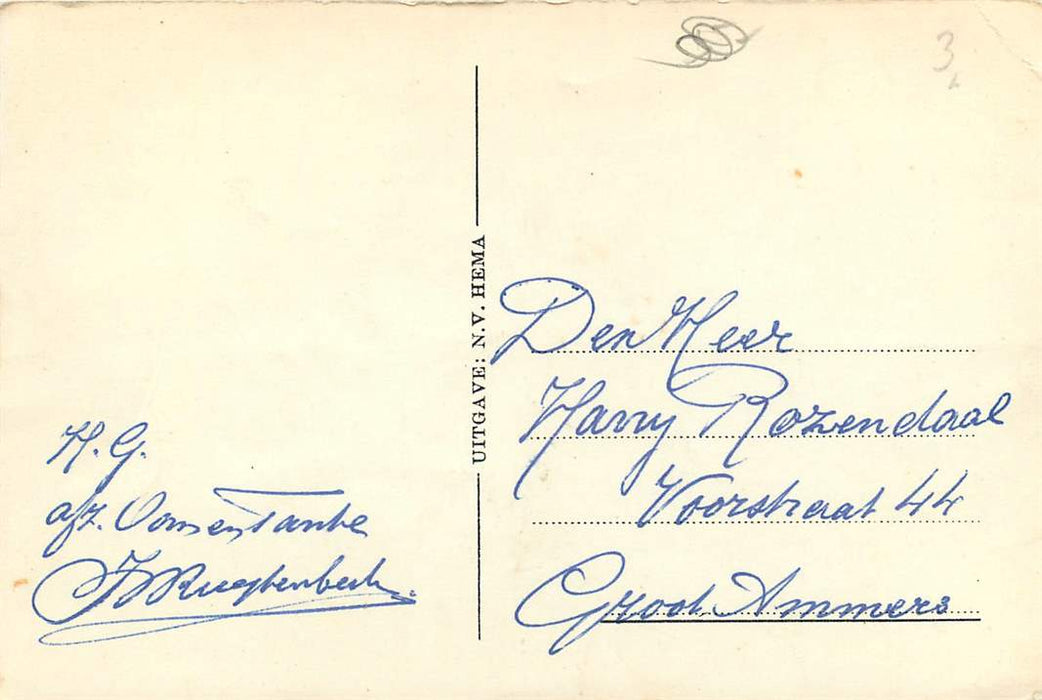 3
H. G.
afz. Oom en Tante
UITGAVE: N.V. HEMA
Den Heer
Harry Rozendaal
Voorstraat 44
Groot Ammers